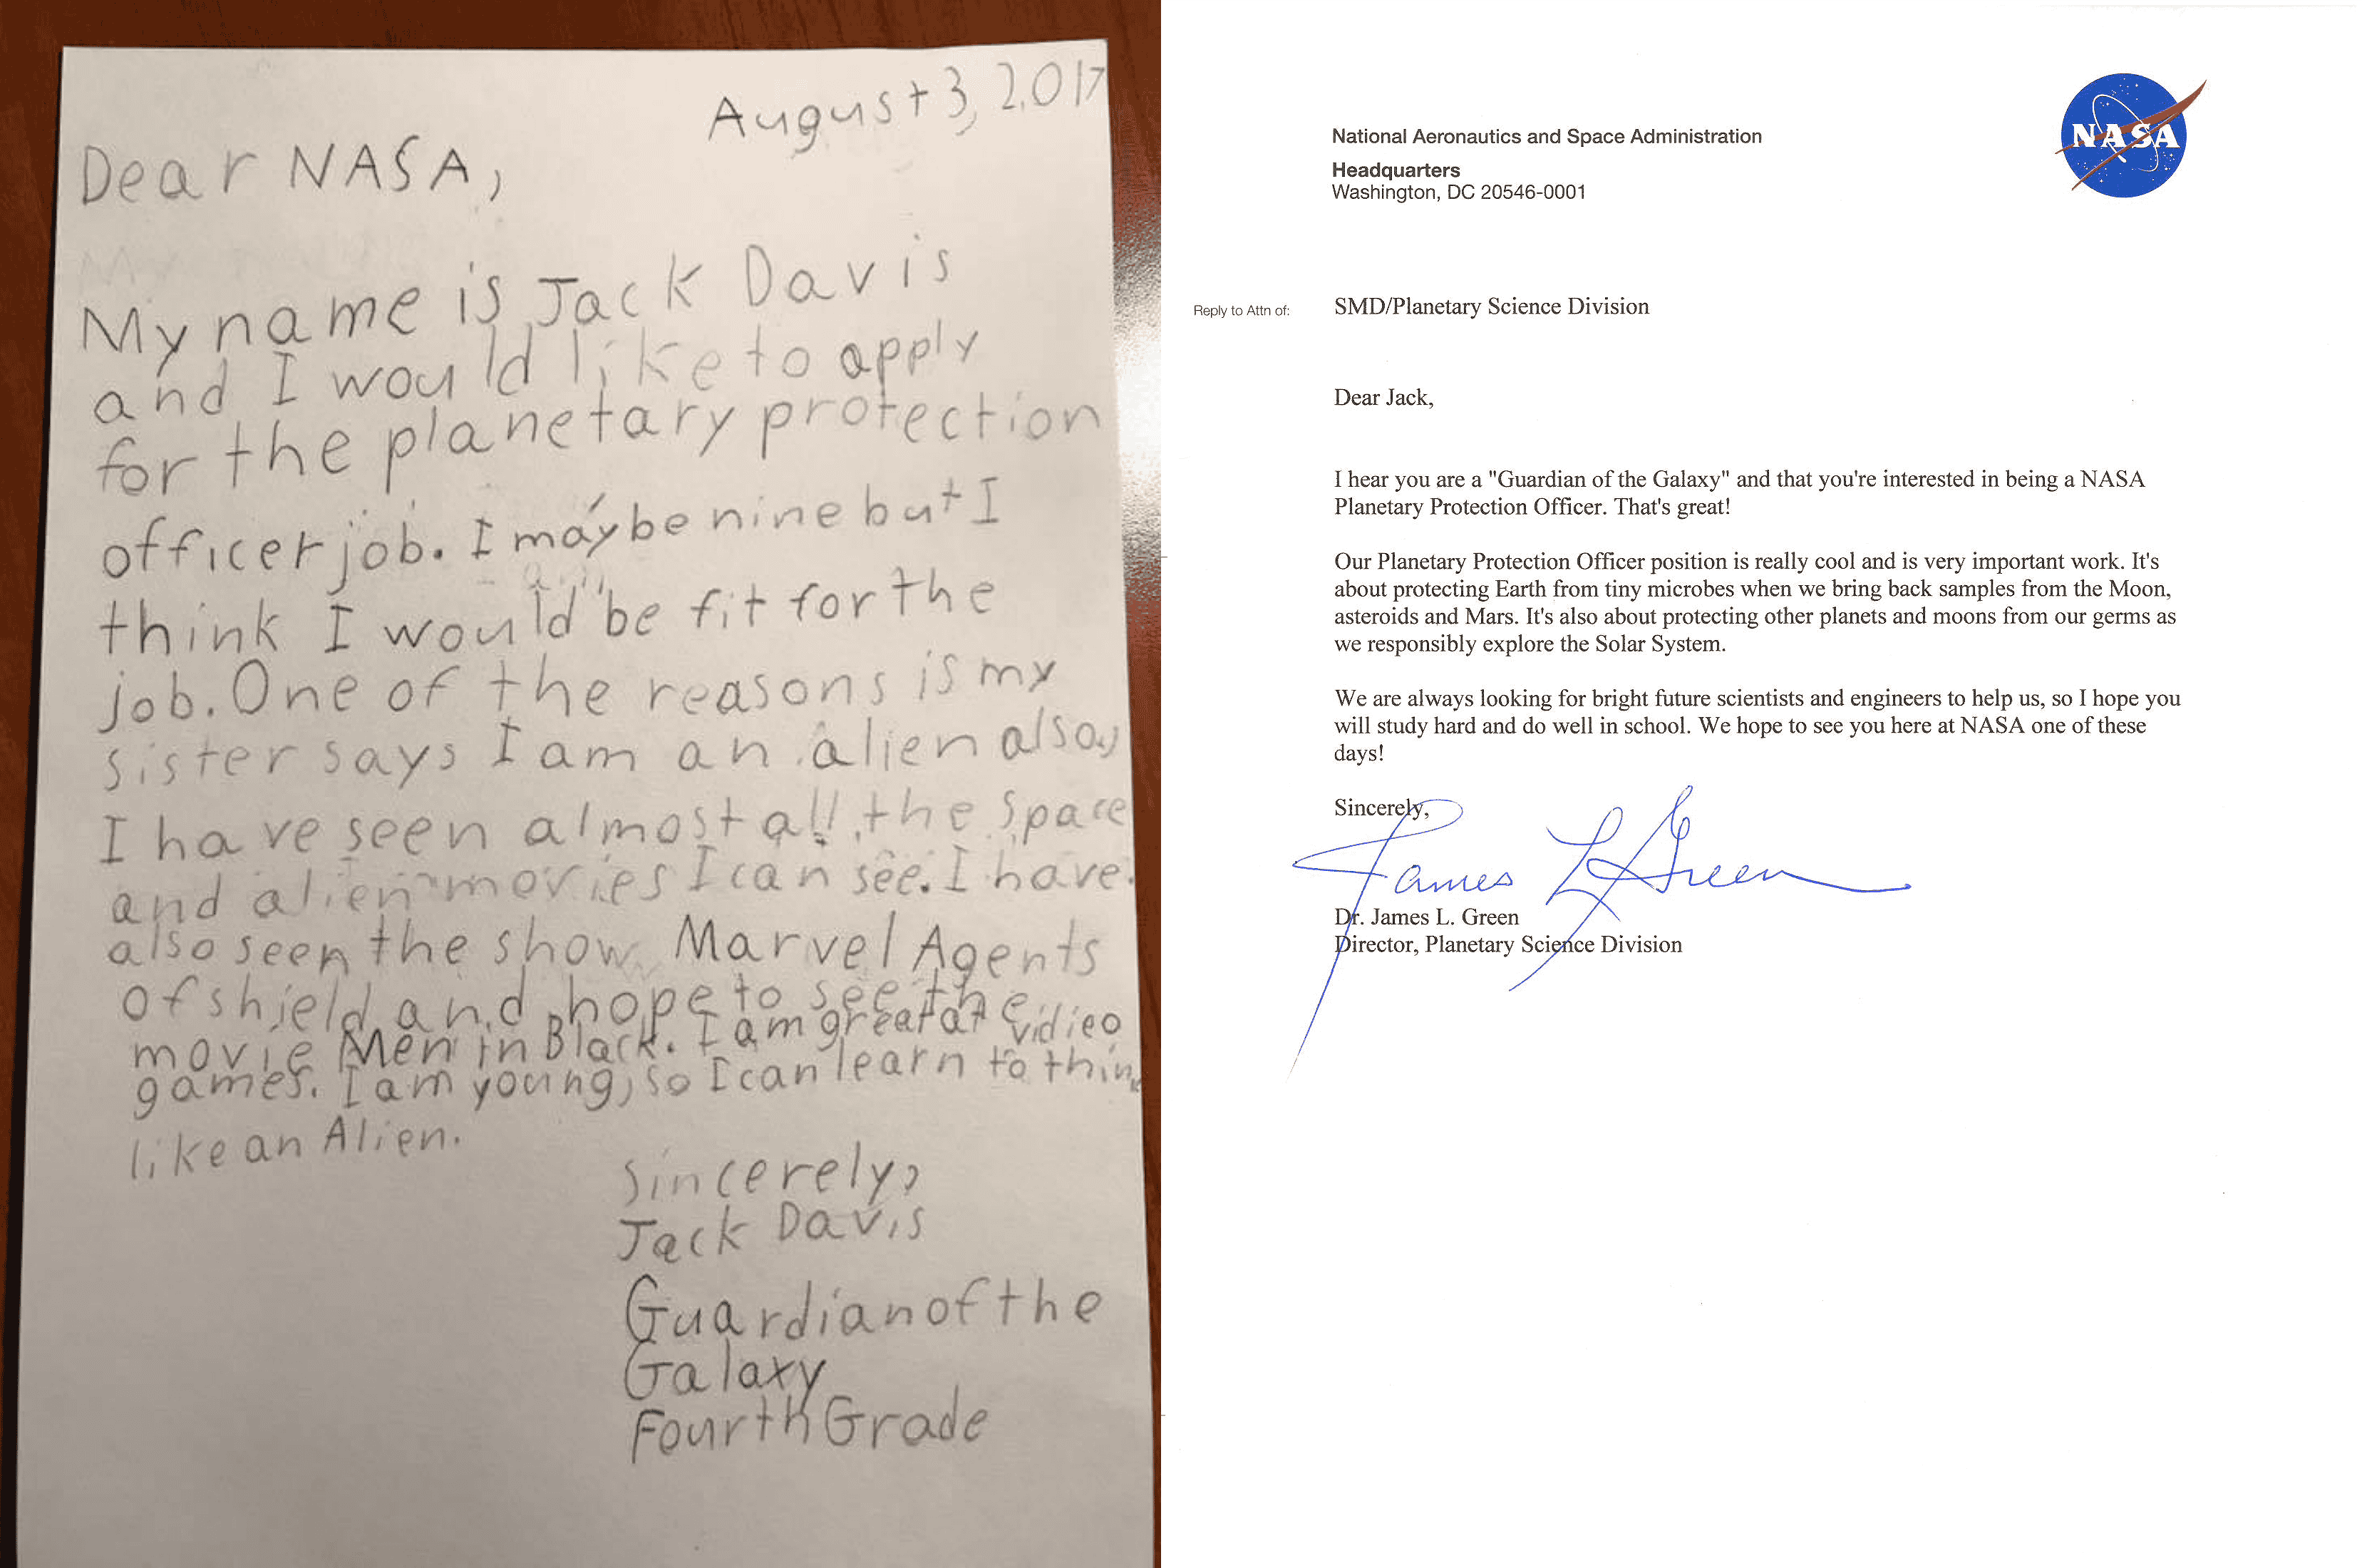 August 3, 2017
Dear NASA,
My name is Jack Davis
and I would like to apply
for the planetary protection
officer job. I may be nine but I
think I would be fit for the
job. One of the reasons is my
sister says I am an alien also,
I have seen almost all the space
and alien movies I can see. I have
also seen the show Marvel Agents
of shield and hope to see the
movie Men in Black. I am great at vidieo
games. I am young, so I can learn to think
like an Alien.
Sincerely,
Jack Davis
Guardian of the
Galaxy
Fourth Grade
NASA
National Aeronautics and Space Administration
Headquarters
Washington, DC 20546-0001
Reply to Attn of: SMD/Planetary Science Division
Dear Jack,
I hear you are a "Guardian of the Galaxy" and that you're interested in being a NASA
Planetary Protection Officer. That's great!
Our Planetary Protection Officer position is really cool and is very important work. It's
about protecting Earth from tiny microbes when we bring back samples from the Moon,
asteroids and Mars. It's also about protecting other planets and moons from our germs as
we responsibly explore the Solar System.
We are always looking for bright future scientists and engineers to help us, so I hope you
will study hard and do well in school. We hope to see you here at NASA one of these
days!
Sincerely,
James L Green
Dr. James L. Green
Director, Planetary Science Division